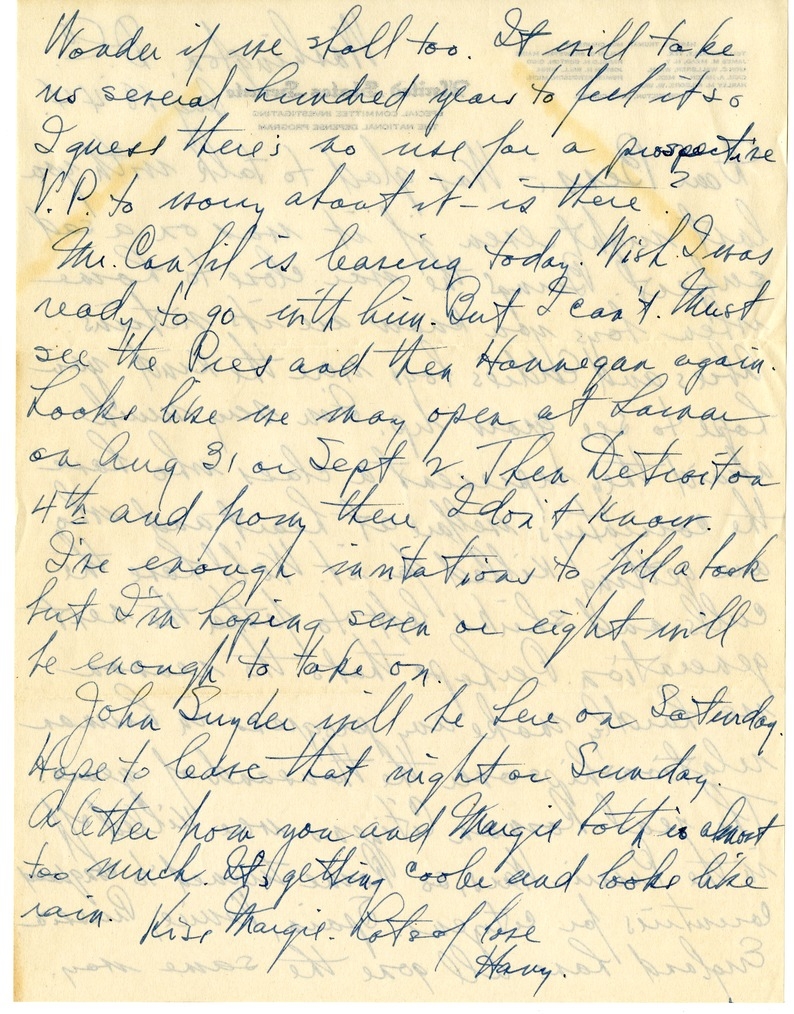 Wonder if we shall too. It will take
us several hundred years to feel it so
I guess there's no use for a prospective
V.P. to worry about it - is there?
Mr. Canfil is leaving today. Wish I was
ready to go with him. But I can't. Must
see the Pres and then Hannegan again.
Looks like we may open at Lamar
on Aug 31 or Sept 2. Then Detroit on
4th and from there I don't know.
I've enough invitations to fill a book
but I'm hoping seven or eight will
be enough to take on.
John Snyder will be here on Saturday.
Hope to leave that night or Sunday.
A letter from you and Margie both is almost
too much. It's getting cooler and looks like
rain.
Kiss Margie. Lots of love
Harry.